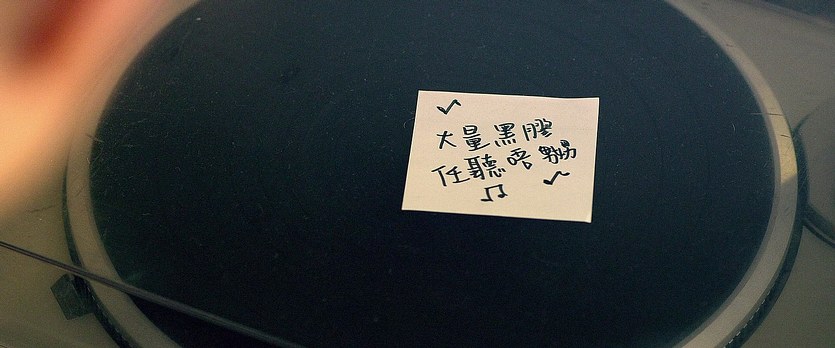 大量黑膠
任聽唔嬲